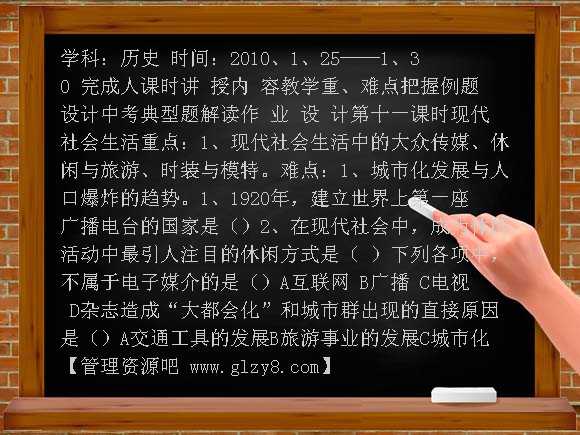 学科：历史 时间：2010、1、25——1、3
0 完成人课时讲 授内 容教学重、难点把握例题
设计中考典型题解读作 业 设 计第十一课时现代
社会生活重点：1、现代社会生活中的大众传媒、休
闲与旅游、时装与模特。难点：1、城市化发展与人
口爆炸的趋势。1、1920年，建立世界上第一座
广播电台的国家是（）2、在现代社会中，成
活动中最引人注目的休闲方式是（ ）下列各项中，
不属于电子媒介的是（）A互联网 B广播 C电视
D杂志造成“大都会化”和城市群出现的直接原因
是（）A交通工具的发展B旅游事业的发展C城市化
【管理资源吧 www.glzy8.com】